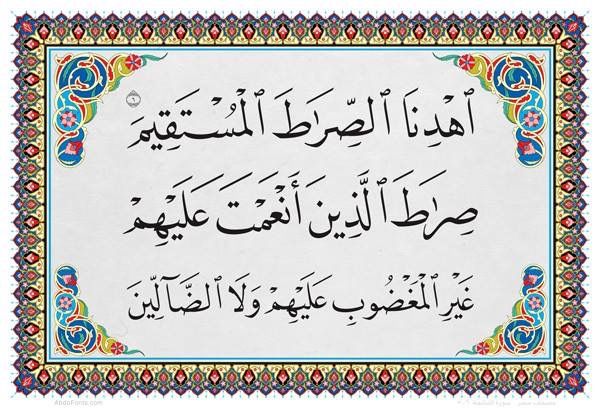 ٱهْدِنَا ٱلصِّرَٰطَ ٱلْمُسْتَقِيمَ ٦
صِرَٰطَ ٱلَّذِينَ أَنْعَمْتَ عَلَيْهِمْ
غَيْرِ ٱلْمَغْضُوبِ عَلَيْهِمْ وَلَا ٱلضَّآلِّينَ
AbdoFonts.com